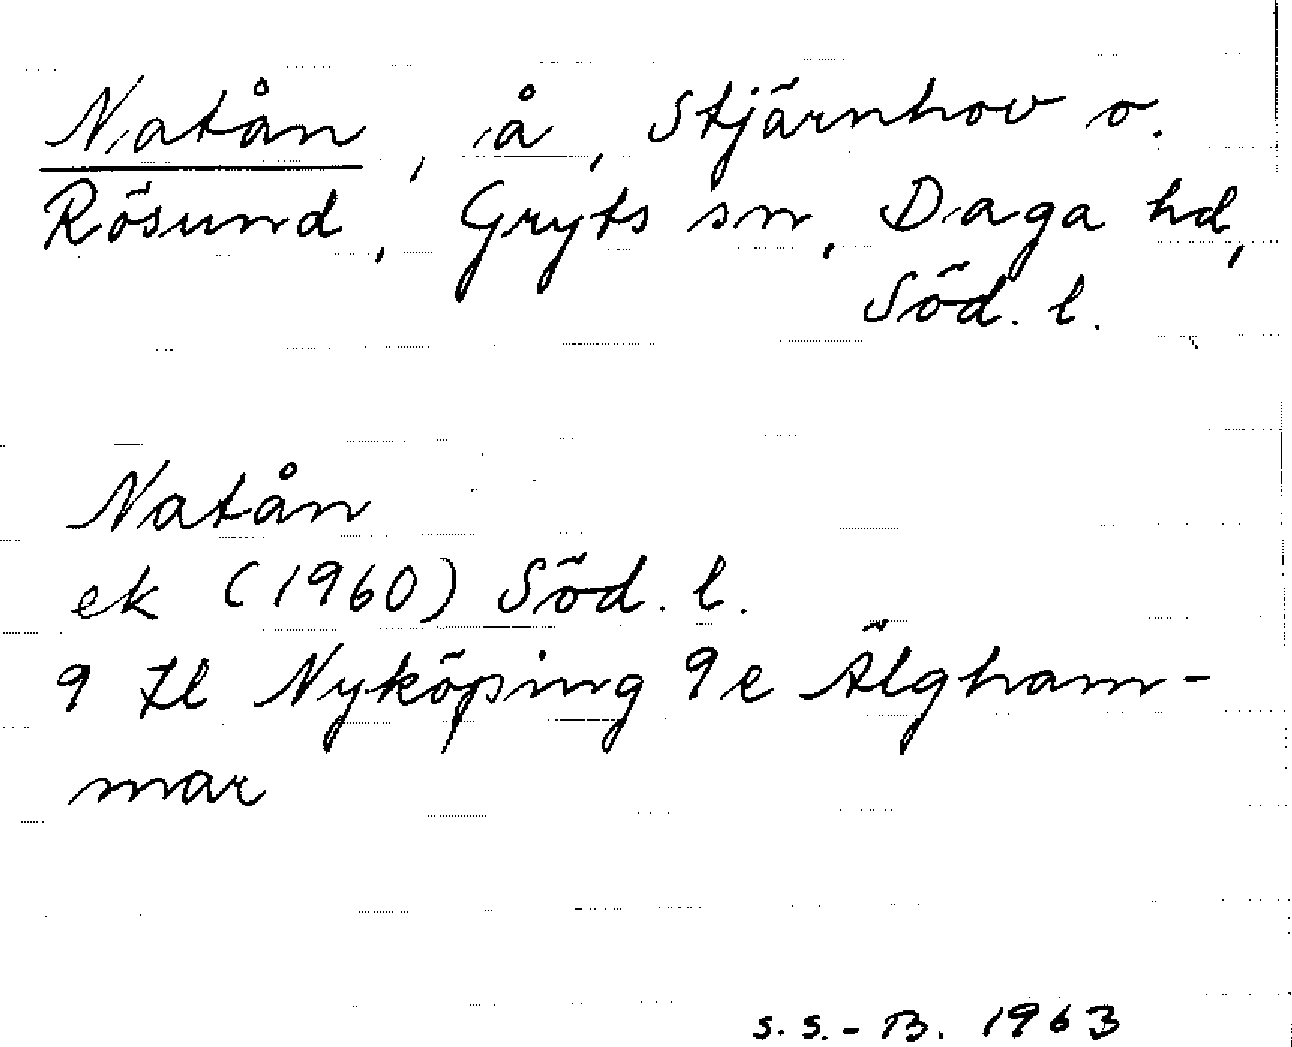 Natån, å, Stjärnhov o.
Rösund, Gryts sn, Daga hd,
Söd. l.
Natån
ek (1960) Söd. l.
9 Nyköping 9e Älgham-
mar
s.s.-B. 1963